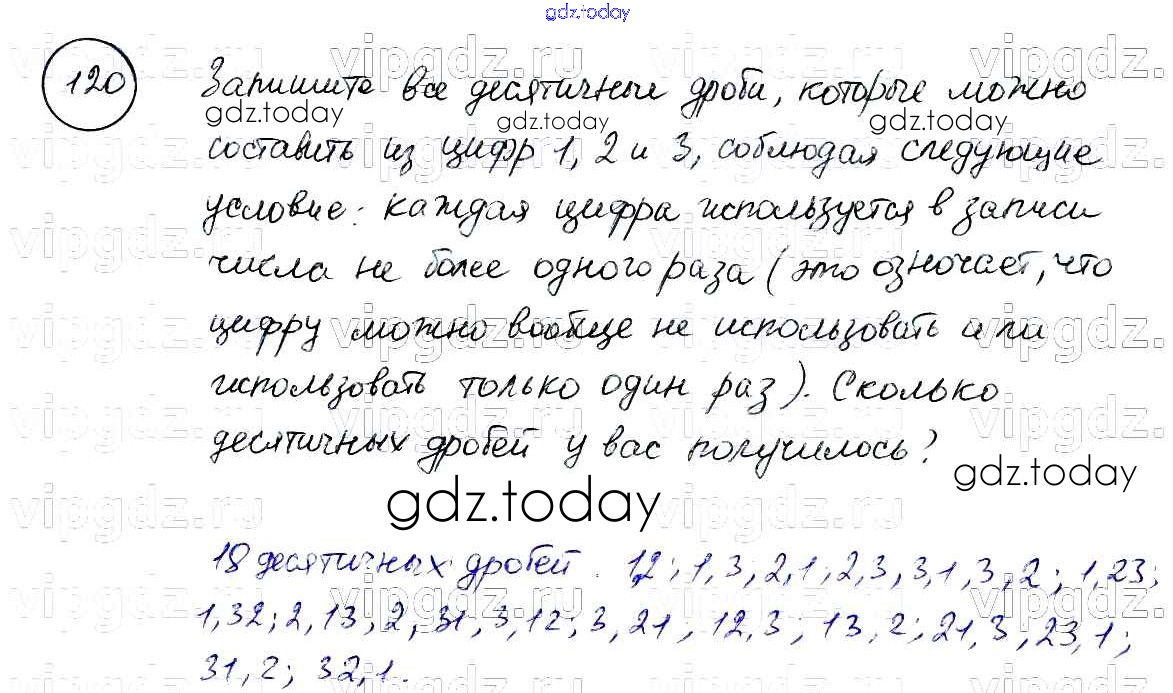 gdz.today
120 Запишите все десятичные дроби, которые можно
gdz.today gdz.today gdz.today
составить из цифр 1, 2 и 3, соблюдая следующие
условие: каждая цифра используется в записи
числа не более одного раза (это означает, что
цифру можно вообще не использовать или
использовать только один раз). Сколько
десятичных дробей у вас получилось?
gdz.today gdz.today
18 десятичных дробей. 1,2; 1,3; 2,1; 2,3; 3,1; 3,2; 1,23;
1,32; 2,13; 2,31; 3,12; 3,21; 12,3; 13,2; 21,3; 23,1;
31,2; 32,1.
vipgdz.ru